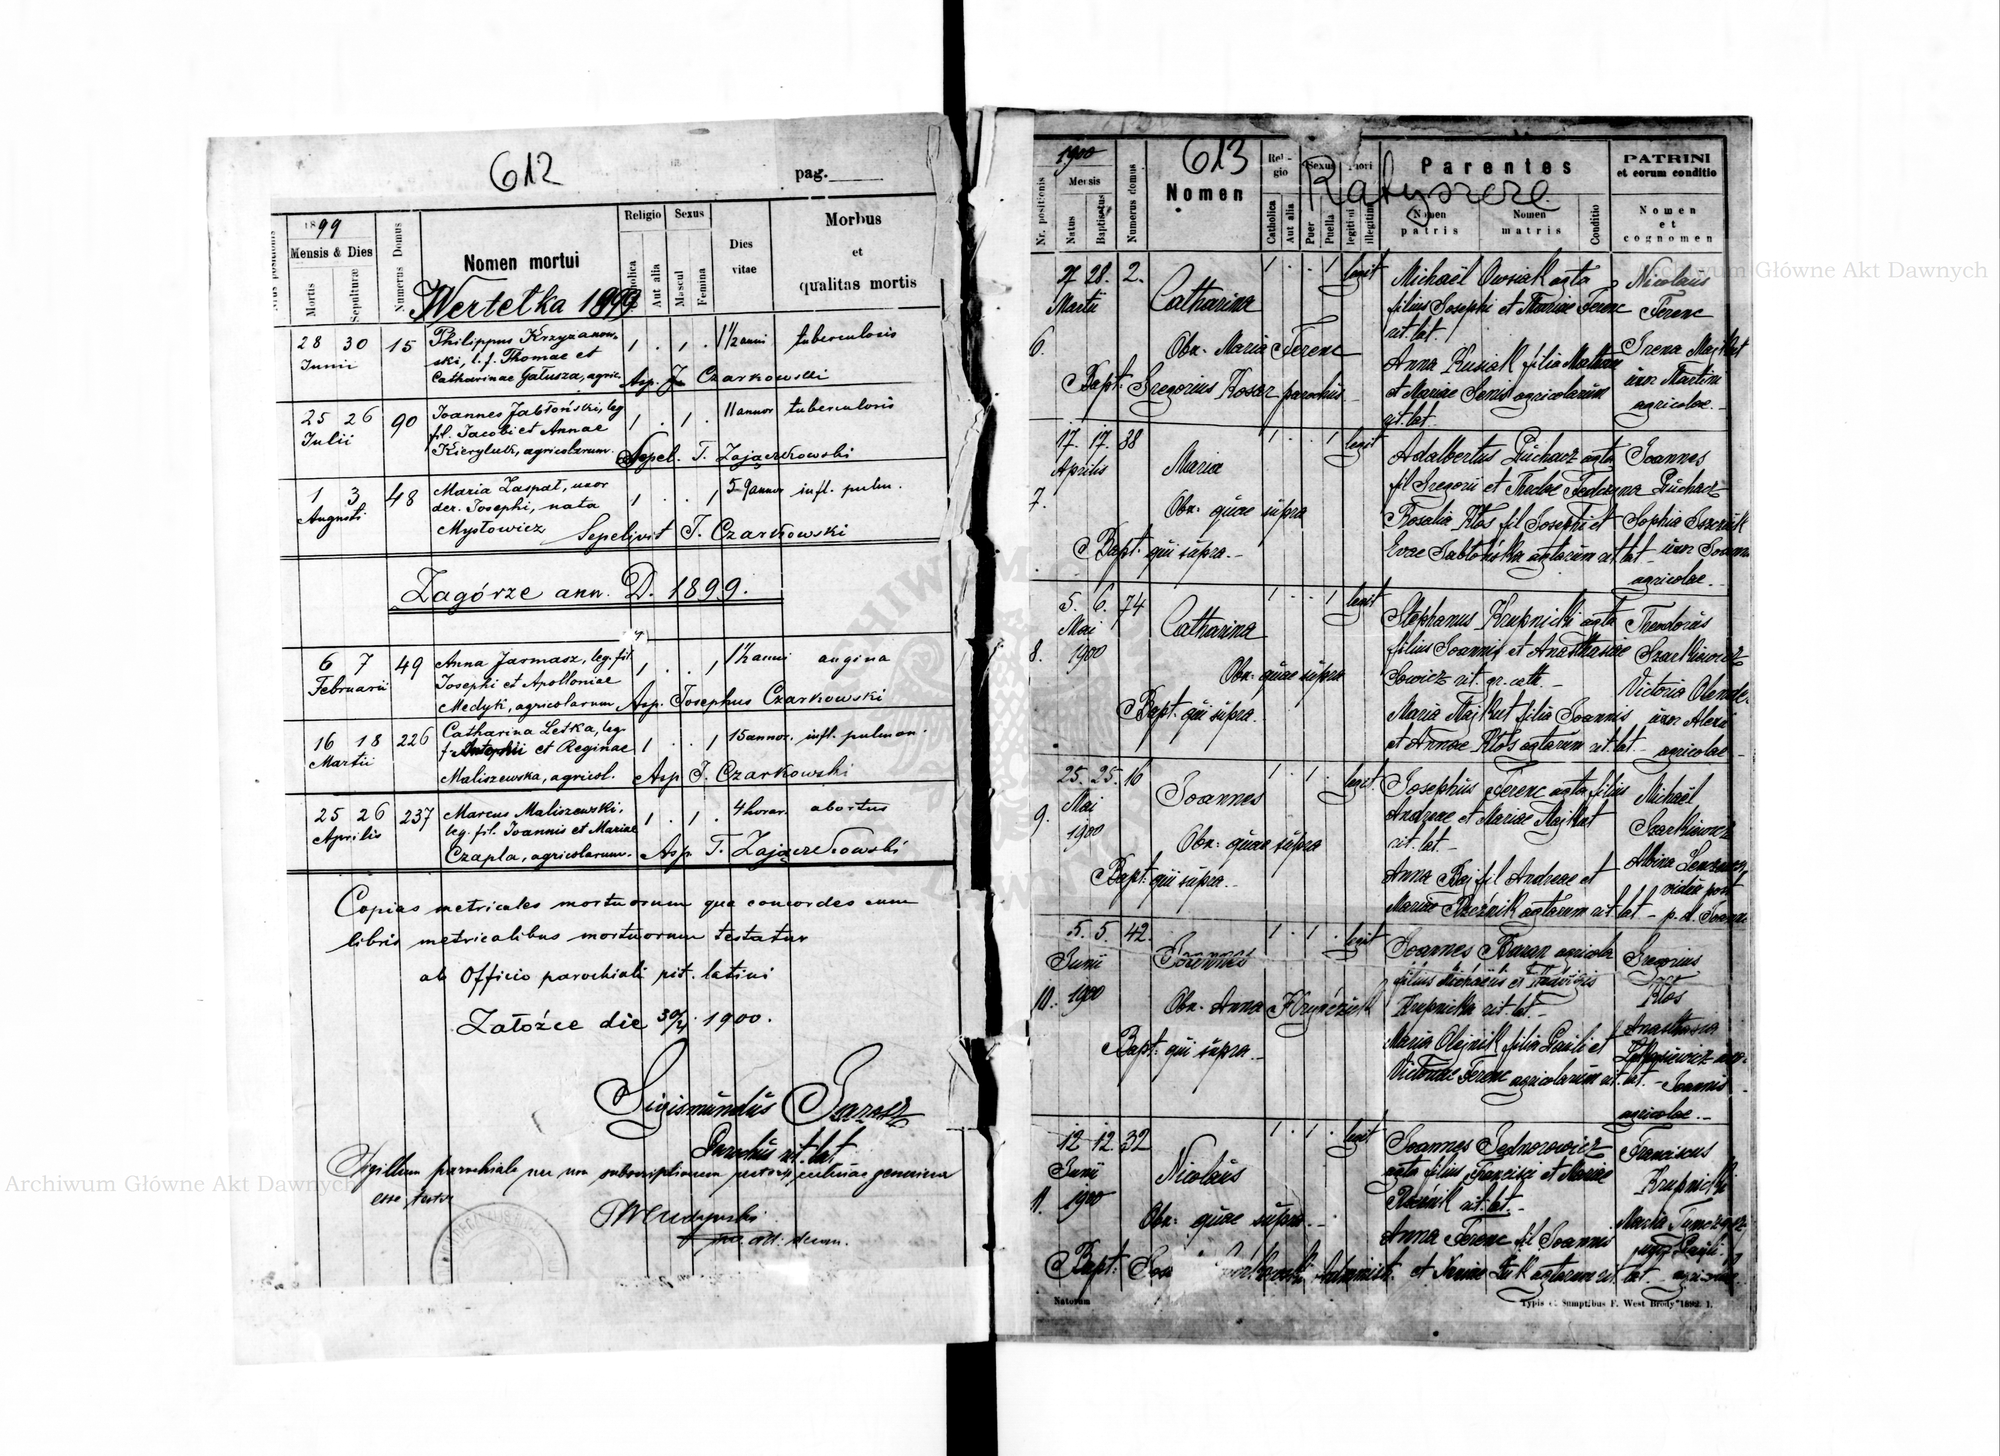 612
pag.
1899
Mensis & Dies
Mortis
Sepulturæ
Numerus Domus
Nomen mortui
Religio
Aut alia
Sexus
Mascul
Femina
Dies
vitae
Morbus
et
qualitas mortis
Wertelka 1899
28 30
Junii
15
Philippus Krzyżanow-
ski, l. f. Thomae et
Catharinae Gałusza, agric.
1 . 1 .
1½ anni
tuberculosis
Asp. J. Czarkowski
25 26
Julii
90
Joannes Jabłoński, leg
fil. Jacobi et Annae
Kieryluk, agricolarum.
1 . 1 .
11 annor
tuberculosis
Sepel. T. Zajączkowski
1 3
Augusti
48
Maria Zaspał, uxor
der. Josephi, nata
Mysłowicz
1 . . 1
59 annor
infl. pulm.
Sepelivit J. Czarkowski
Zagórze ann. D. 1899.
6 7
Februarii
49
Anna Jarmasz, leg. fil.
Josephi et Apolloniae
Medyk, agricolarum
1 . . 1
1½ anni
angina
Asp. Josephus Czarkowski
16 18
Martii
226
Catharina Letka, leg.
et Reginae
Maliszewska, agricol.
1 . . 1
15 annor.
infl. pulmon.
Asp J. Czarkowski
25 26
Aprilis
237
Marcus Maliszewski,
leg. fil. Joannis et Mariae
Czapla, agricolarum.
1 . 1 .
4 horar.
abortus
Asp T. Zajączkowski
Copias metricales mortuorum qua concordes cum
libris metricalibus mortuorum testatur
ab Officio parochiali rit. latini
Załoźce die 30/4 1900.
Sigismundus
Parochus rit. lat
Sigillum parochiale nec non subscriptionem
esse
1900
613
Ratyszcze
Nr. positionis
Mensis
Natus
Baptisatus
Numerus domus
Nomen
Religio
Catholica
Aut alia
Sexus
Puer
Puella
legitimi
illegitimi
Parentes
Nomen
patris
Nomen
matris
Conditio
PATRINI
et eorum conditio
Nomen
et
cognomen
6.
27 28.
Martii
2.
Catharina
1 . . 1
legit
Michaël Owsiak agta
filius Josephi et Mariae Ferenc
rit. lat.
Anna Kusiak filia
et Mariae Senis agricolarum
rit. lat.
Nicolaus
Ferenc
Irena Majkut
uxor Martini
agricolae.
Obn. Maria Ferenc
Bapt. Gregorius Kosar parochus
7.
17. 17.
Aprilis
38
Maria
1 . . 1
legit
Adalbertus Puchacz agta
fil Gregorii et Theclae Fedczyna
Rosalia Kłos fil Josephi et
Evae Jabłońska agtarum rit. lat
Joannes
Puchacz
Sophia
uxor
agricolae.
Obn. quae supra
Bapt. qui supra.
8.
5. 6.
Mai
1900
74
Catharina
1 . . 1
legit
Stephanus Krupnicki agta
filius Joannis et Anasthasiae
Sowicz rit. gr. cath.
Maria Majkut filia Joannis
et Annae Kłos agtarum rit. lat
Theodorus
Szarkiewicz
Victoria
uxor Alexii
agricolae
Obn. quae supra
Bapt. qui supra.
9.
25. 25.
Mai
1900
16
Joannes
1 . 1 .
legit.
Josephus Ferenc agta filius
Andreae et Mariae Majkut
rit. lat.
Anna Baj fil Andreae et
Mariae Rzeźnik agtarum rit. lat
Michaël
Szarkiewicz
Albina
vidua post
p. d.
Obn. quae supra
Bapt. qui supra.
10.
5. 5.
Junii
1900
42.
Joannes
1 . 1 .
legit
Joannes Baran agricola
filius Michaëlis et Hedvigis
Krupnicka rit. lat.
Maria Olejnik filia Pauli et
Victoriae Ferenc agricolarum rit. lat.
Gregorius
Kłos
Anasthasia
Joannis
agricolae.
Obn. Anna
Bapt. qui supra
11.
12 12
Junii
1900
32
Nicolaus
1 . 1 .
legit
Joannes Jednorowicz
agta filius Francisci et Mariae
rit. lat.
Anna Ferenc fil Joannis
et Luk agtarum rit. lat.
Franciscus
Krupnicki
Maria
Obn. quae supra.
Bapt.
Natorum
Typis et Sumptibus F. West Brody 1892. 1.
Archiwum Główne Akt Dawnych
Archiwum Główne Akt Dawnych